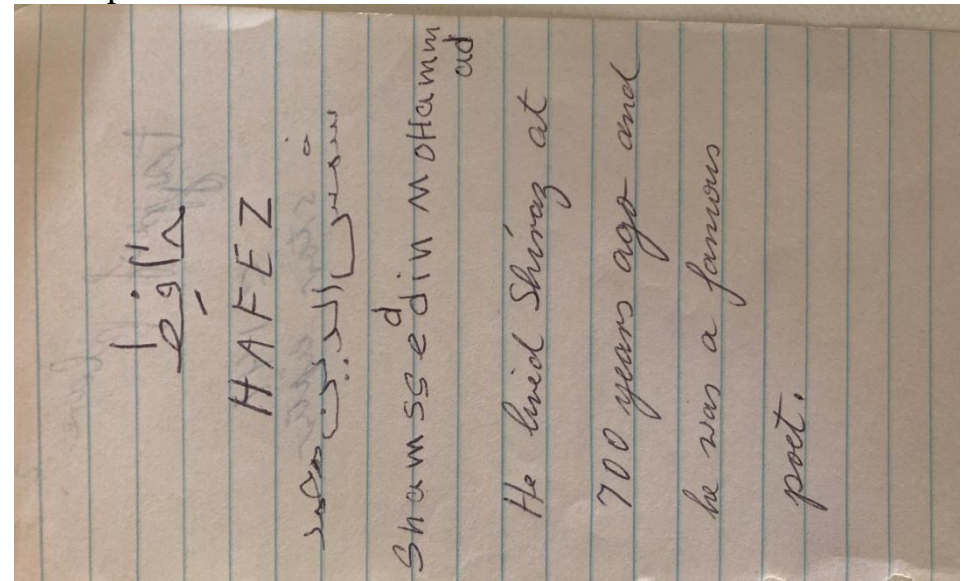 حافظ
HAFEZ
شمس الدین محمد
Shamsseddin MOHammad
He lived Shiraz at
700 years ago and
he was a famous
poet.